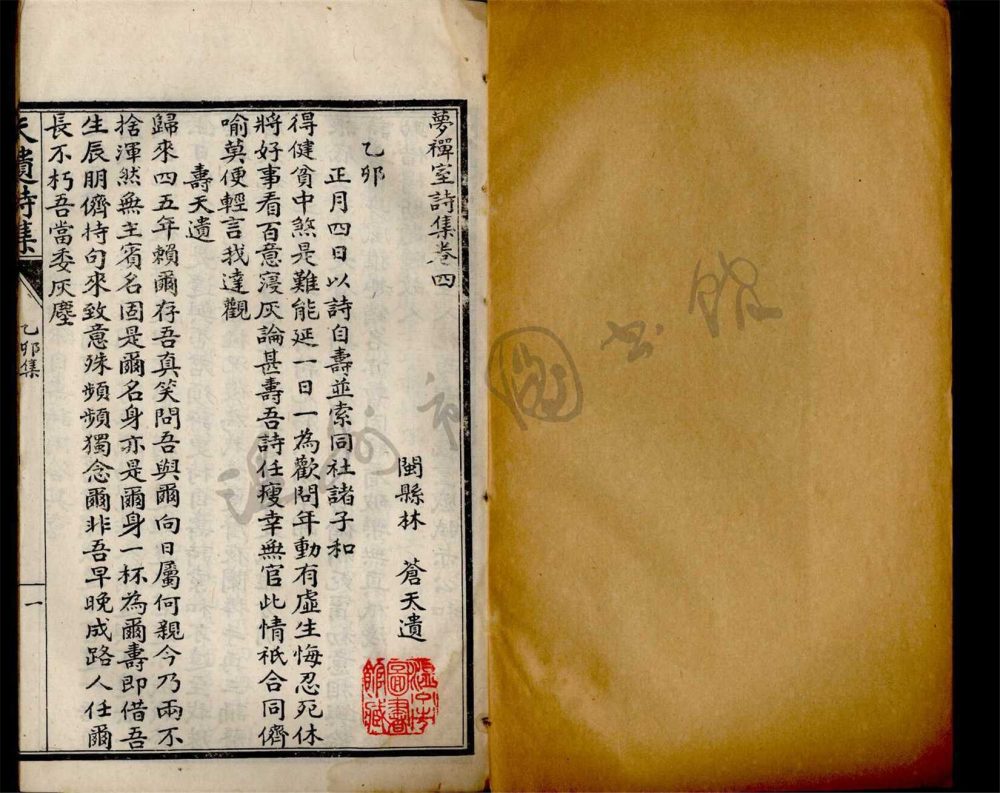 夢禪室詩集卷四
閩縣林　蒼天遺
乙卯
正月四日以詩自壽並索同社諸子和
得健貧中煞是難能延一日一為歡問年動有虛生悔忍死休
將好事看百意寢灰論甚壽吾詩任瘦幸無官此情祇合同儕
喻莫便輕言我達觀
壽天遺
歸來四五年賴爾存吾真笑問吾與爾向日屬何親今乃兩不
捨渾然無主賓名固是爾名身亦是爾身一杯為爾壽即借吾
生辰朋儕持句來致意殊頻頻獨念爾非吾早晚成路人任爾
長不朽吾當委灰塵
天遺詩集
乙卯集
一
圖書館藏
圖書館